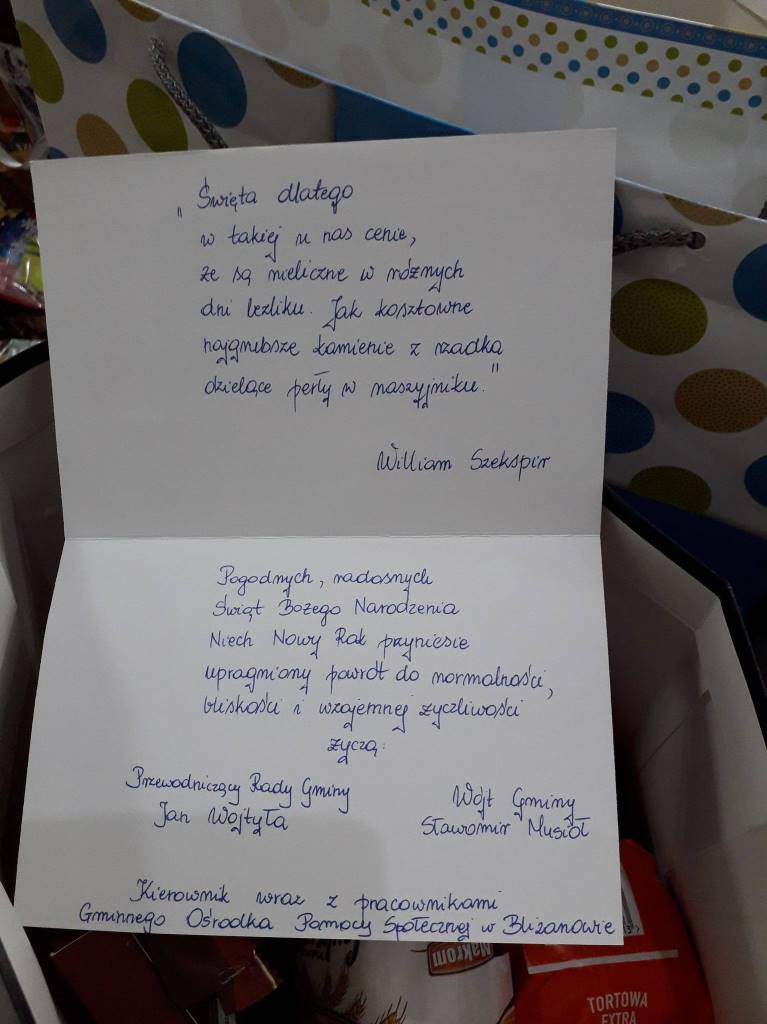 "Święta dlatego
w takiej u nas cenie,
że są nieliczne w różnych
dni bezliku. Jak kosztowne
najgrubsze kamienie z rzadka
dzielące perły w naszyjniku."
William Szekspir
Pogodnych, radosnych
Świąt Bożego Narodzenia
Niech Nowy Rok przyniesie
upragniony powrót do normalności,
bliskości i wzajemnej życzliwości
życzą:
Przewodniczący Rady Gminy
Jan Wojtyła
Wójt Gminy
Sławomir Musioł
Kierownik wraz z pracownikami
Gminnego Ośrodka Pomocy Społecznej w Blizanowie
Makrom
TORTOWA
EXTRA